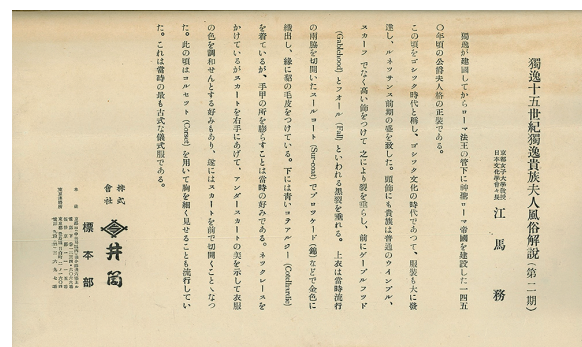 獨逸十五世紀獨逸貴族夫人風俗解說（第二期）
京都女子大學教授
日本文化學會々長
江馬務
獨逸が建國してからローマ法王の管下に神聖ローマ帝國を建設した一四五
〇年頃の公爵夫人格の正裝である。
この頃をゴシック時代と稱し、ゴシック文化の時代であつて、服裝も大に發
達し、ルネッサンス前期の盛を致した。頭飾にも貴族は普通のウインプル、
スカーフでなく高い飾をつけて之により裂を垂らし、前にゲーブルフッド
(Gablehood)とフオール(Fall)といわれる黑裂を垂れる。上衣は當時流行
の兩脇を切開いたスールコート(Sur-coat)でブロツケード(錦)などで金色に
織出し、緣に貂の毛皮をつけている。下には青いコテアルジー(Cotelhardie)
を着ているが、手甲の所を膨らすことは當時の好みである。ネックレースを
かけているがスカートを右手にあげて、アンダースカートの美を示して衣服
の色を調和せんとする好みもあり、遂にはスカートを前で切開くことゝなつ
た。此の頃はコルセット(Corset)を用いて胸を細く見せることも流行してい
た。これは當時の最も古式な儀式服である。
株式會社
井筒
標本部